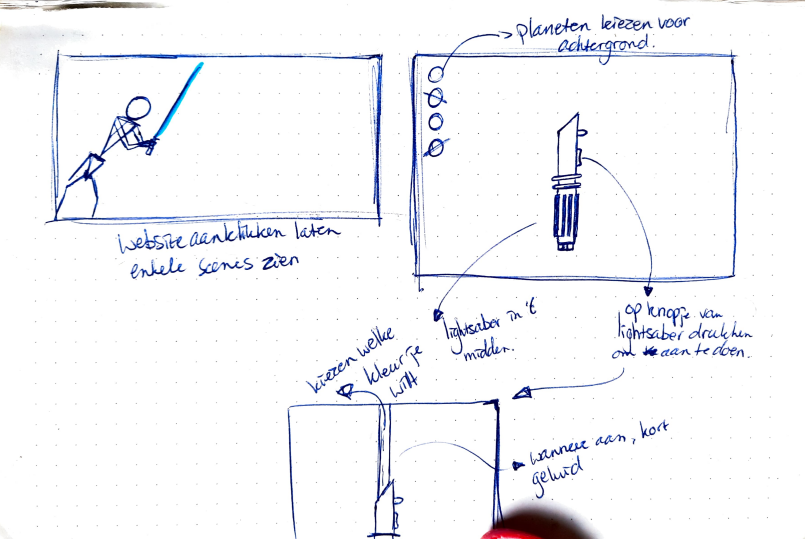 planeten kiezen voor
achtergrond.
website aanklikken laten
enkele scenes zien
lightsaber in 't
midden.
op knopje van
lightsaber drukken
om aan te doen.
kiezen welke
kleur je
wilt
wanneer aan, kort
geluid